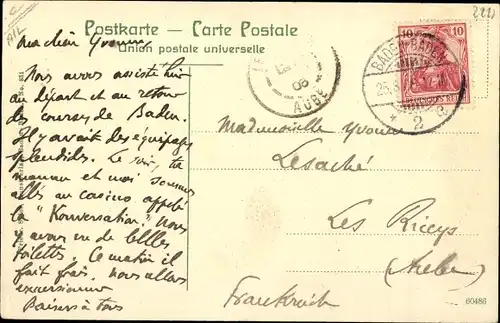 Postkarte – Carte Postale
Union postale universelle
Ma chère Yvonne
Nous avons assisté hier
au départ et au retour
des courses de Baden.
Il y avait des équipages
splendides. Le soir, ta
maman et moi sommes
allés au casino appelé
la "Konversation". Nous
y avons vu de belles
toilettes. Ce matin il
fait frais. Nous allons
excursionner
Baisers à tous
10 10
BADEN-BADEN
2
AUBE
08
Mademoiselle Yvonne
Lesaché
Les Riceys
(Aube)
Frankreich
60486